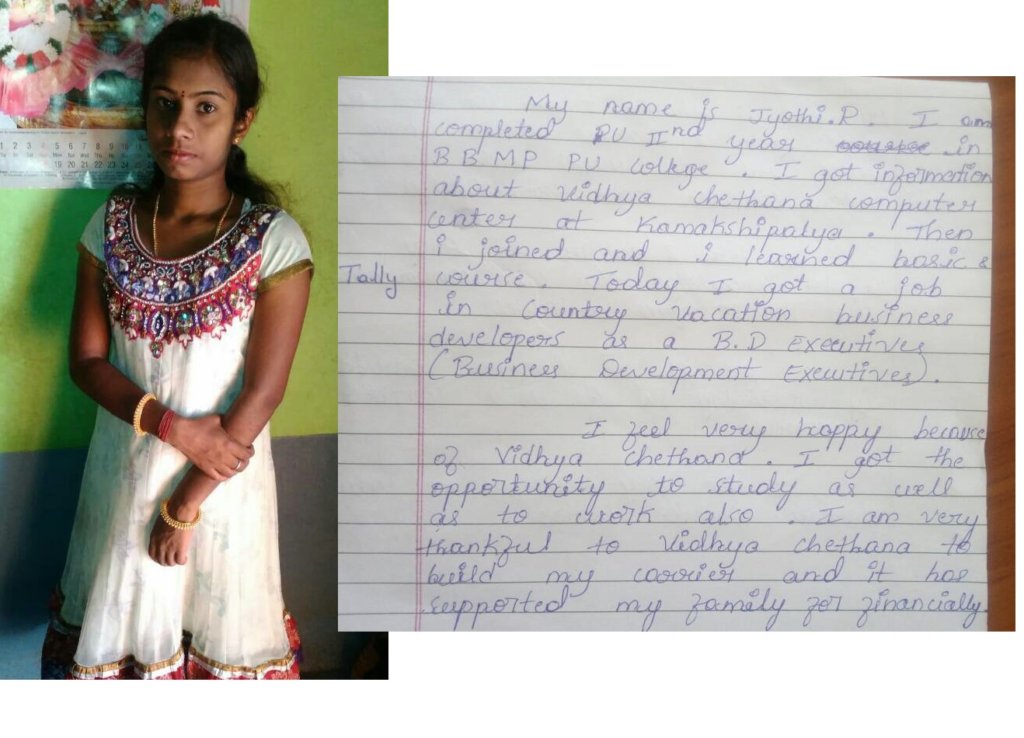 My name is Jyothi.R. I am
completed PU IInd year in
B B M P PU College. I got information
about Vidhya Chethana computer
center at Kamakshipalya. Then
i joined and i learned basic &
Tally course. Today I got a job
in Country Vacation business
developers as a B.D Executives
(Business Development Executives).
I feel very happy because
of Vidhya Chethana. I got the
opportunity to study as well
as to work also. I am very
thankful to Vidhya Chethana to
build my carrier and it has
supported my family for financially.
1 2 3 4 5 6 7 8 9 10